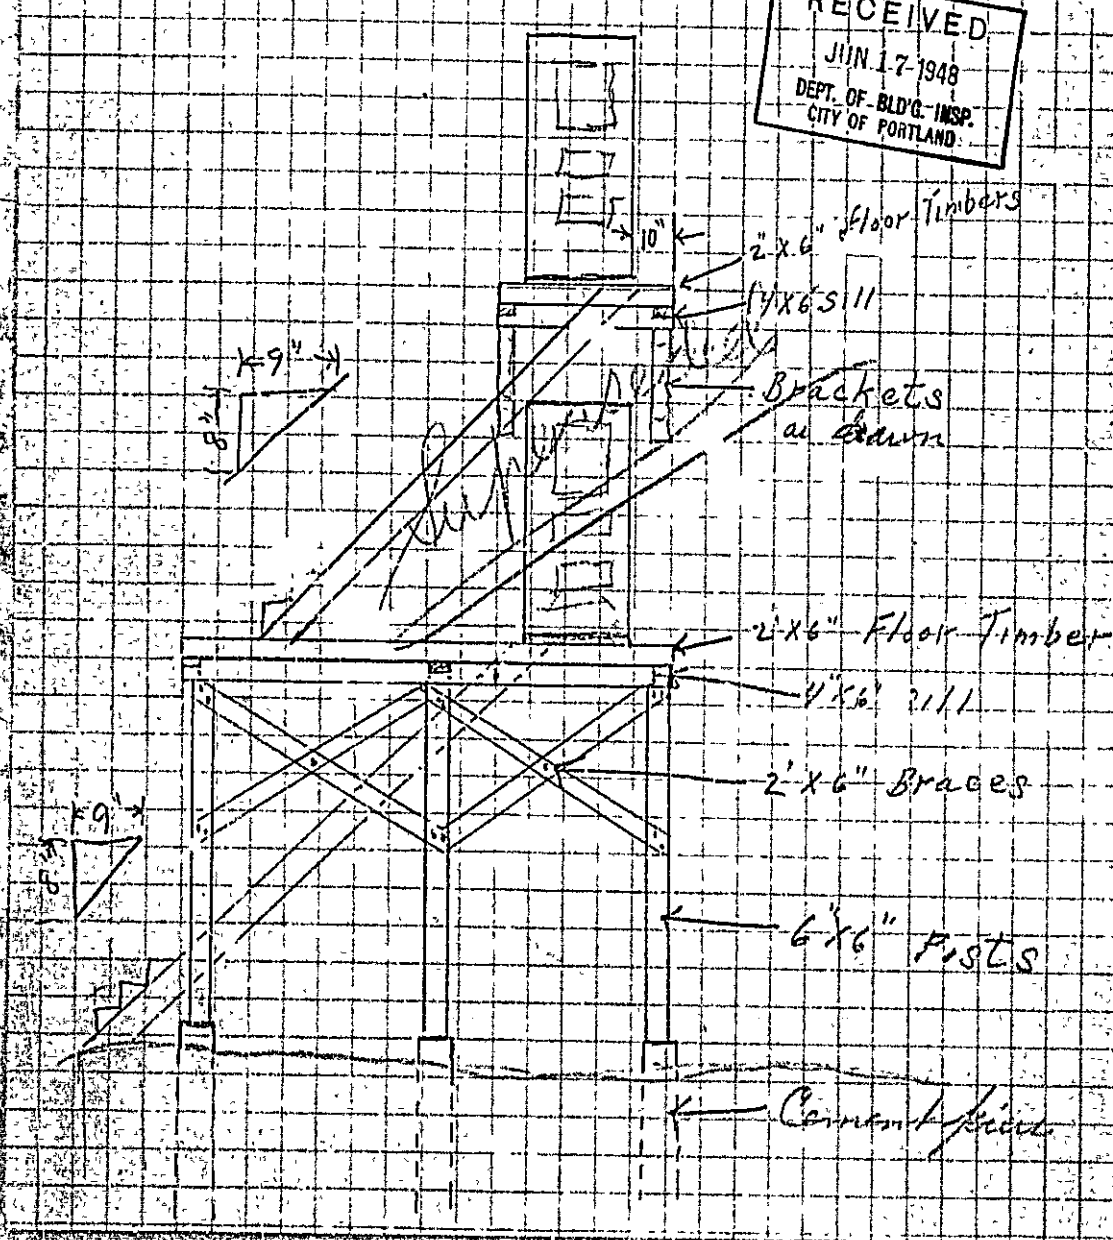 RECEIVED
JUN 17 1948
DEPT. OF BLD'G. INSP.
CITY OF PORTLAND
10"
2"X6" floor Timbers
4X6 Sill
9"
8"
Brackets
as drawn
2"X6" Floor Timber
4"X6" Sill
2"X6" Braces
9"
8"
6"X6" Posts
Cement piers